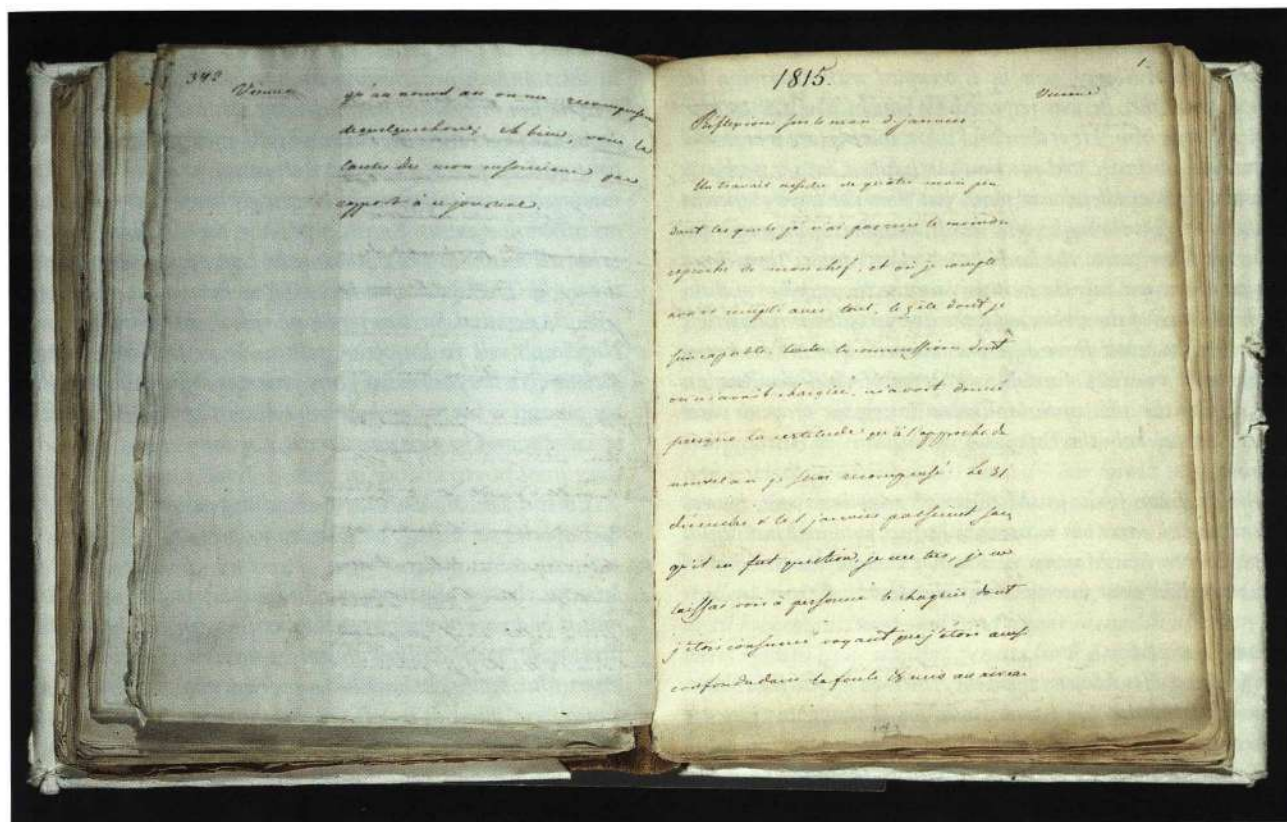 342
Vienne
qu'au nouvel an on me recompensera
de quelque chose; eh bien, voila la
cause de mon insouciance par
rapport à ce journal.
1815.
1
Vienne
Réflexion sur le mois de janvier
Un travail assidu de quatre mois pen
dant les quels je n'ai pas reçu le moindre
reproche de mon chef, et où je compte
avoir rempli avec tout le zèle dont je
suis capable toute les commissions dont
on m'avoit chargée, m'avoit donné
presque la certitude qu'à l'approche de
nouvel an je serai recompensé. Le 31
decembre & le 1 janvier passerent sans
qu'il en fut question, je me tus, je ne
laissai voir à personne le chagrin dont
j'étois consumé voyant que j'étois aussi
confondu dans la foule & mis au niveau